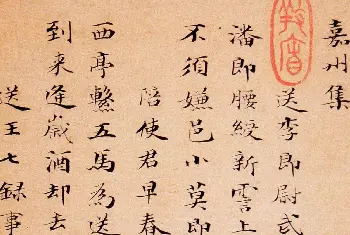 嘉州集
送李郎尉武
潘郎腰綬新霅上
不須嫌邑小莫即
陪使君早春
西亭繫五馬為送
到来逢歳酒却去
送王七録事